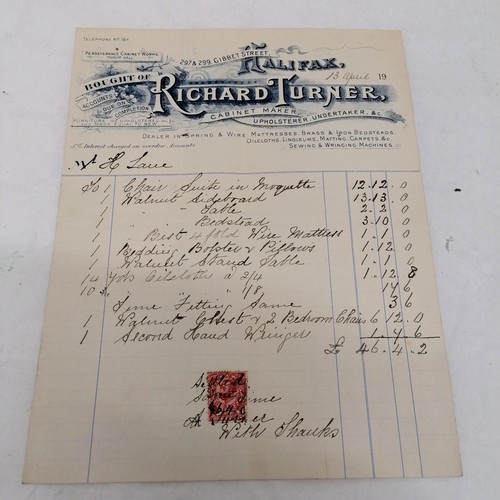 TELEPHONE Nº 184
PERSEVERANCE CABINET WORKS
297 & 299, GIBBET STREET,
HALIFAX,
13 April 19
BOUGHT OF
RICHARD TURNER,
CABINET MAKER,
UPHOLSTERER, UNDERTAKER, &c.
ACCOUNTS
DUE ON
COMPLETION
DEALER IN SPRING & WIRE MATTRESSES, BRASS & IRON BEDSTEADS,
OILCLOTHS, LINOLEUMS, MATTING, CARPETS, &c.
SEWING & WRINGING MACHINES
5% Interest charged on overdue Accounts
Mr H Lane
To 1 Chair Suite in Moquette 12.12.0
1 Walnut Sideboard 13.13.0
1 " Table 2.2.0
1 " Bedstead 3.10.0
1 Best 4 fold Wire Mattress 1.1.0
1 Bedding Bolster & Pillows 1.12.0
1 Walnut Stand Table 1.1.0
14 yds Oilcloths a 2/4 1.12.8
10 " " 1/8 14 6
Time Fitting Same 3 6
1 Walnut Chest & 2 Bedroom Chairs 6 12.0
1 Second Hand Wringer 1.4.6
£ 46.4.2
Settled
Same time
With Thanks